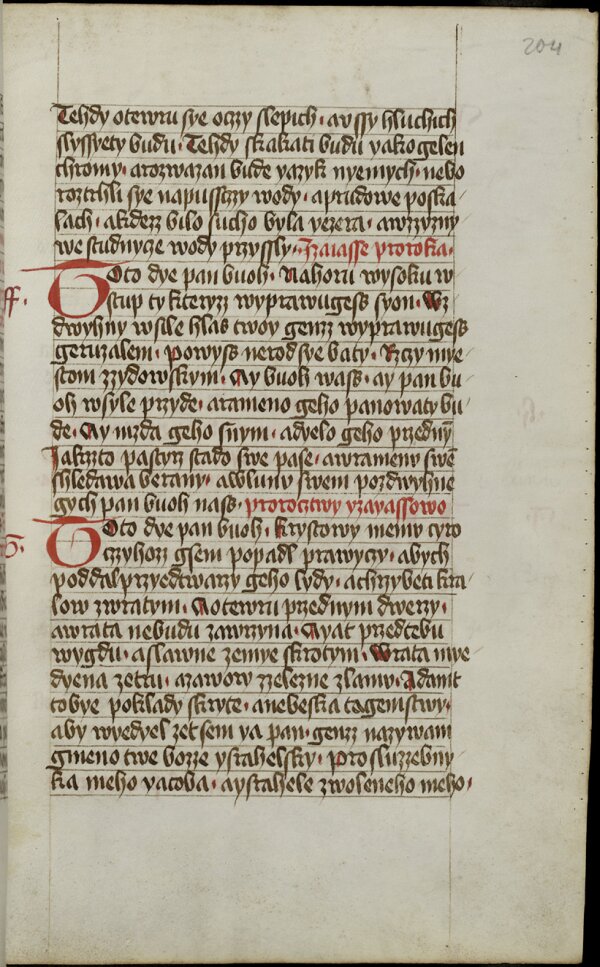 204
Tehdy otewru sye oczy slepich · a vssy hluchich
slyssyety budu · Tehdy skakati budu yako gelen
chromy · a rozwazan bude yazyk nyemych · nebo
roztrhli sye na pussczy wody · a prudowe po ska
lach · a kdezz bilo sucho byla yezera · a w zyzny
we studnyce wody przyssly · Izaiasse proroka ·
Toto dye pan buoh · Na horu wysoku w
stup ty kteryzz wyprawugess syon · Wz
dwyhny w sile hlas twoy genzz wyprawugess
geruzalem · Powyss nerod sye baty · Rczy mye
stom zzydowskym · Ay buoh wass · ay pan bu
oh w syle przyde · a rameno geho panowaty bu
de · Ay mzda geho s nym · a dyelo geho przed nȳ
Jakzto pastyrz stado swe pase · a w rameny swē
shledawa berany · a w lunu swem pozdwyhne
gych pan buoh nass · prorocztwy yzayassowo
ff ·
Toto dye pan buoh · krystowy memu cyro
G ·
czyhozz gsem popadl prawyczy · abych
poddal przyed twarzy geho lydy · a chrzybeti kra
low zwratym · A otewru przed nym dwerzy ·
a wrata nebudu zawrzyna · A ya t przed tebu
wygdu · a slawne zemye skrotym · Wrata mye
dyena zetru · a zawory zzelezne zlamy · A dam t
tobye poklady skryte · a nebeska tagemstwy ·
aby wyedyel zet sem ya pan · genzz nazywam
gmeno twe bozze ysrahelsky · Pro sluzzebny
ka meho yacoba · a ysrahele zwoleneho meho ·